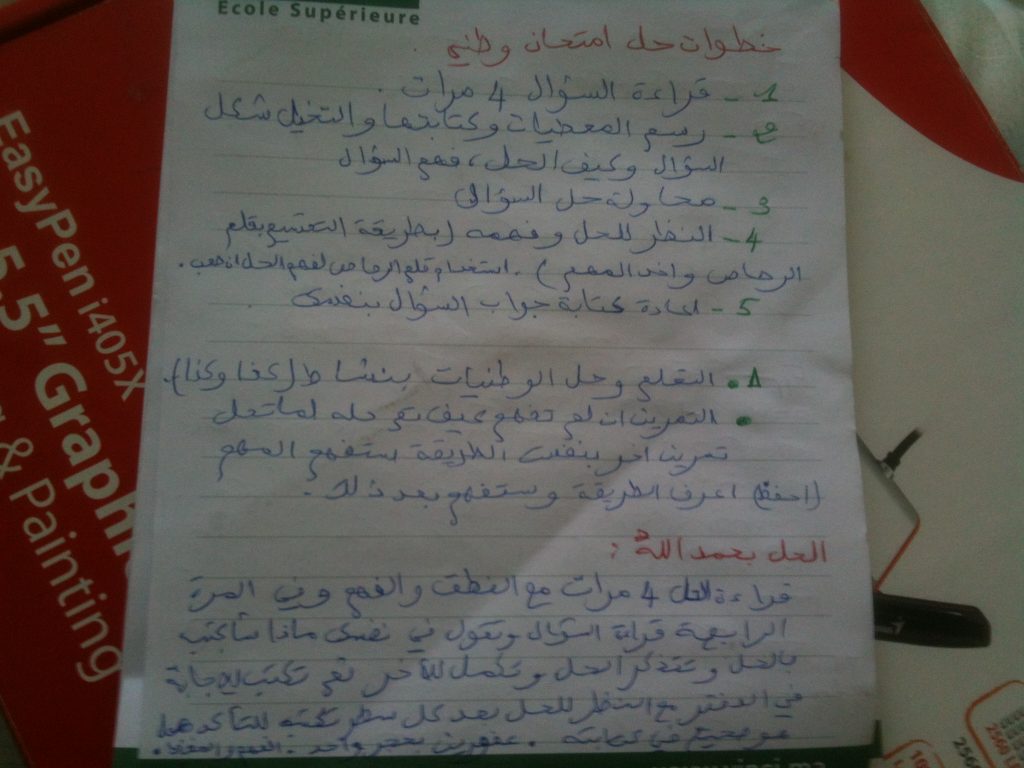 Ecole Supérieure
خطوات حل امتحان وطني.
1 - قراءة السؤال 4 مرات.
2 - رسم المعطيات وكتابتها والتخيل شكل
السؤال وكيف الحل، فهم السؤال
3 - محاولة حل السؤال
4 - النظر للحل وفهمه (بطريقة التتبع بقلم
الرصاص واخذ المهم). استخدام قلم الرصاص لفهم الحل
5 - إعادة كتابة جواب السؤال بنفسي
• التقلع وحل الوطنيات بنشاط (كفا وكنا).
• التمرين ان لم تفهم كيف تم حله لما تحل
تمرين اخر بنفس الطريقة ستفهم المهم
(احفظ) اعرف الطريقة وستفهم بعد ذلك.
الحل بحمد الله:
قراءة الحل 4 مرات مع النطق والفهم وفي المرة
الرابعة قراءة السؤال وتقول في نفسك ماذا سأكتب
بالحل وتتذكر الحل وتكمل للآخر ثم تكتب الإجابة
في الدفتر مع النظر للحل بعد كل سطر تكتبه للتأكد هل
هو صحيح في كتابته. عصفورين بحجر واحد. الفهم والحفظ.
EasyPen i405X
5.5" Graphi
& Painting
256